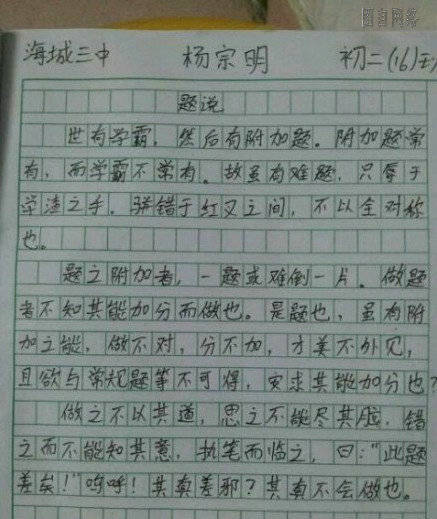 图自网络
海城三中 杨宗明 初二(16)班
题说
世有学霸，然后有附加题。附加题常
有，而学霸不常有。故虽有难题，只辱于
学渣之手，骈错于红叉之间，不以全对称
也。
题之附加者，一题或难倒一片。做题
者不知其能加分而做也。是题也，虽有附
加之能，做不对，分不加，才美不外见，
且欲与常规题等不可得，安求其能加分也？
做之不以其道，思之不能尽其脑，错
之而不能知其意，执笔而临之，曰："此题
差矣！"呜呼！其真差邪？其真不会做也。